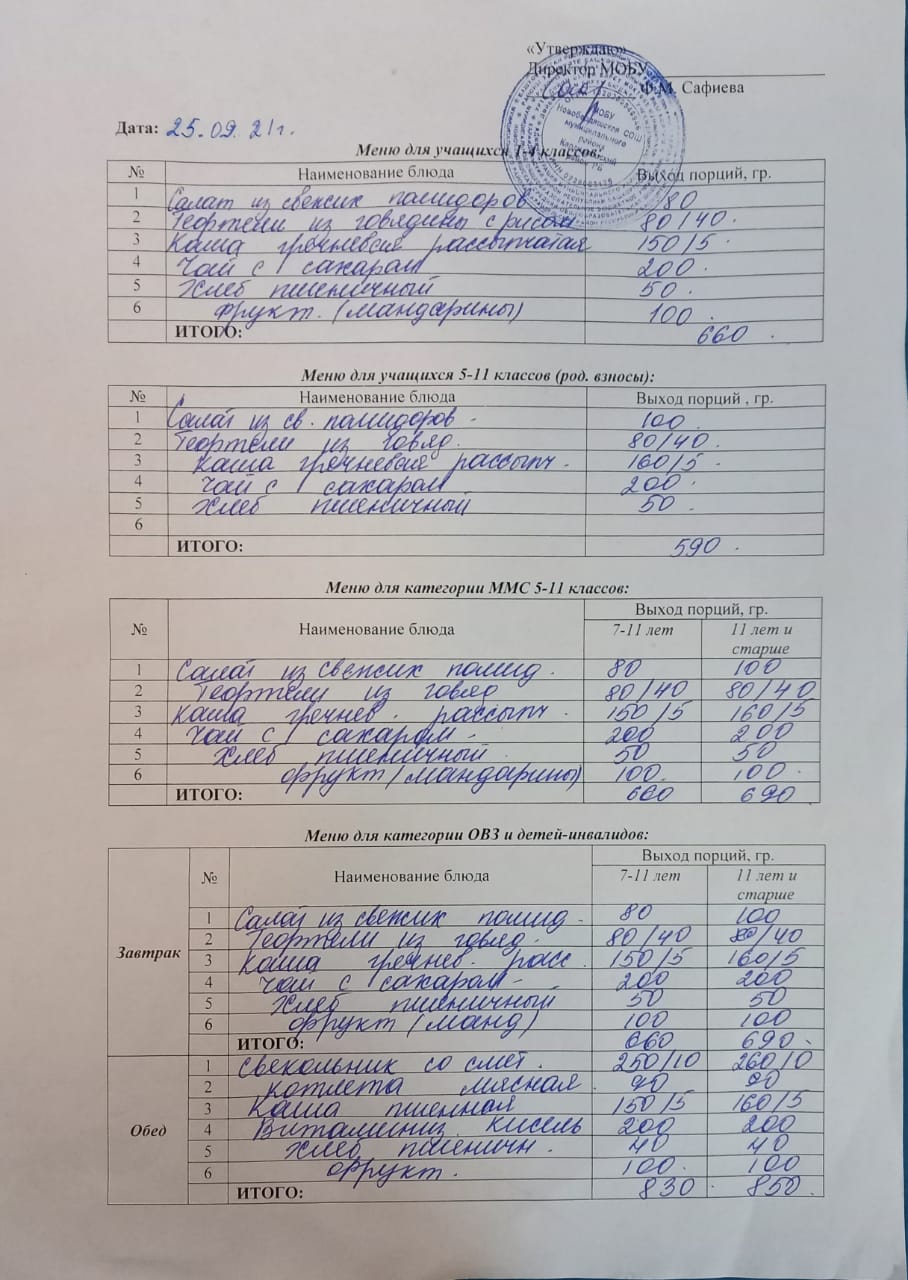 «Утверждаю»
Директор МОБУ
Ф.М. Сафиева
МОБУ
СОШ
муниципального
района
Дата: 25.09.21г.
Меню для учащихся 1-4 классов:
№ Наименование блюда Выход порций, гр.
1 Салат из свежих помидоров 80
2 Тефтели из говядины с рисом 80/40.
3 Каша гречневая рассыпчатая 150/5.
4 Чай с сахаром 200.
5 Хлеб пшеничный 50.
6 Фрукт. (мандарины) 100.
ИТОГО: 660.
Меню для учащихся 5-11 классов (род. взносы):
№ Наименование блюда Выход порций , гр.
1 Салат из св. помидоров - 100.
2 Тефтели из говяд. 80/40.
3 Каша гречневая рассыпч. 160/5.
4 Чай с сахаром 200.
5 Хлеб пшеничный 50.
6
ИТОГО: 590.
Меню для категории ММС 5-11 классов:
№ Наименование блюда Выход порций, гр.
7-11 лет 11 лет и старше
1 Салат из свежих помид. 80 100
2 Тефтели из говяд 80/40 80/40
3 Каша гречнев. рассыпч. 150/5 160/5
4 Чай с сахаром. 200 200
5 Хлеб пшеничный. 50 50
6 Фрукт (мандарины) 100. 100.
ИТОГО: 660 690
Меню для категории ОВЗ и детей-инвалидов:
№ Наименование блюда Выход порций, гр.
7-11 лет 11 лет и старше
Завтрак
1 Салат из свежих помид. 80 100
2 Тефтели из говяд. 80/40 80/40
3 Каша гречнев. расс. 150/5 160/5
4 Чай с сахаром - 200 200
5 Хлеб пшеничный 50 50
6 Фрукт (манд) 100 100
ИТОГО: 660 690.
Обед
1 Свекольник со смет. 250/10 260/10
2 Котлета мясная. 90 90
3 Каша пшенная 150/5 160/5
4 Витаминиз. кисель 200 200
5 Хлеб пшеничн. 40 40
6 Фрукт. 100. 100
ИТОГО: 830. 850.